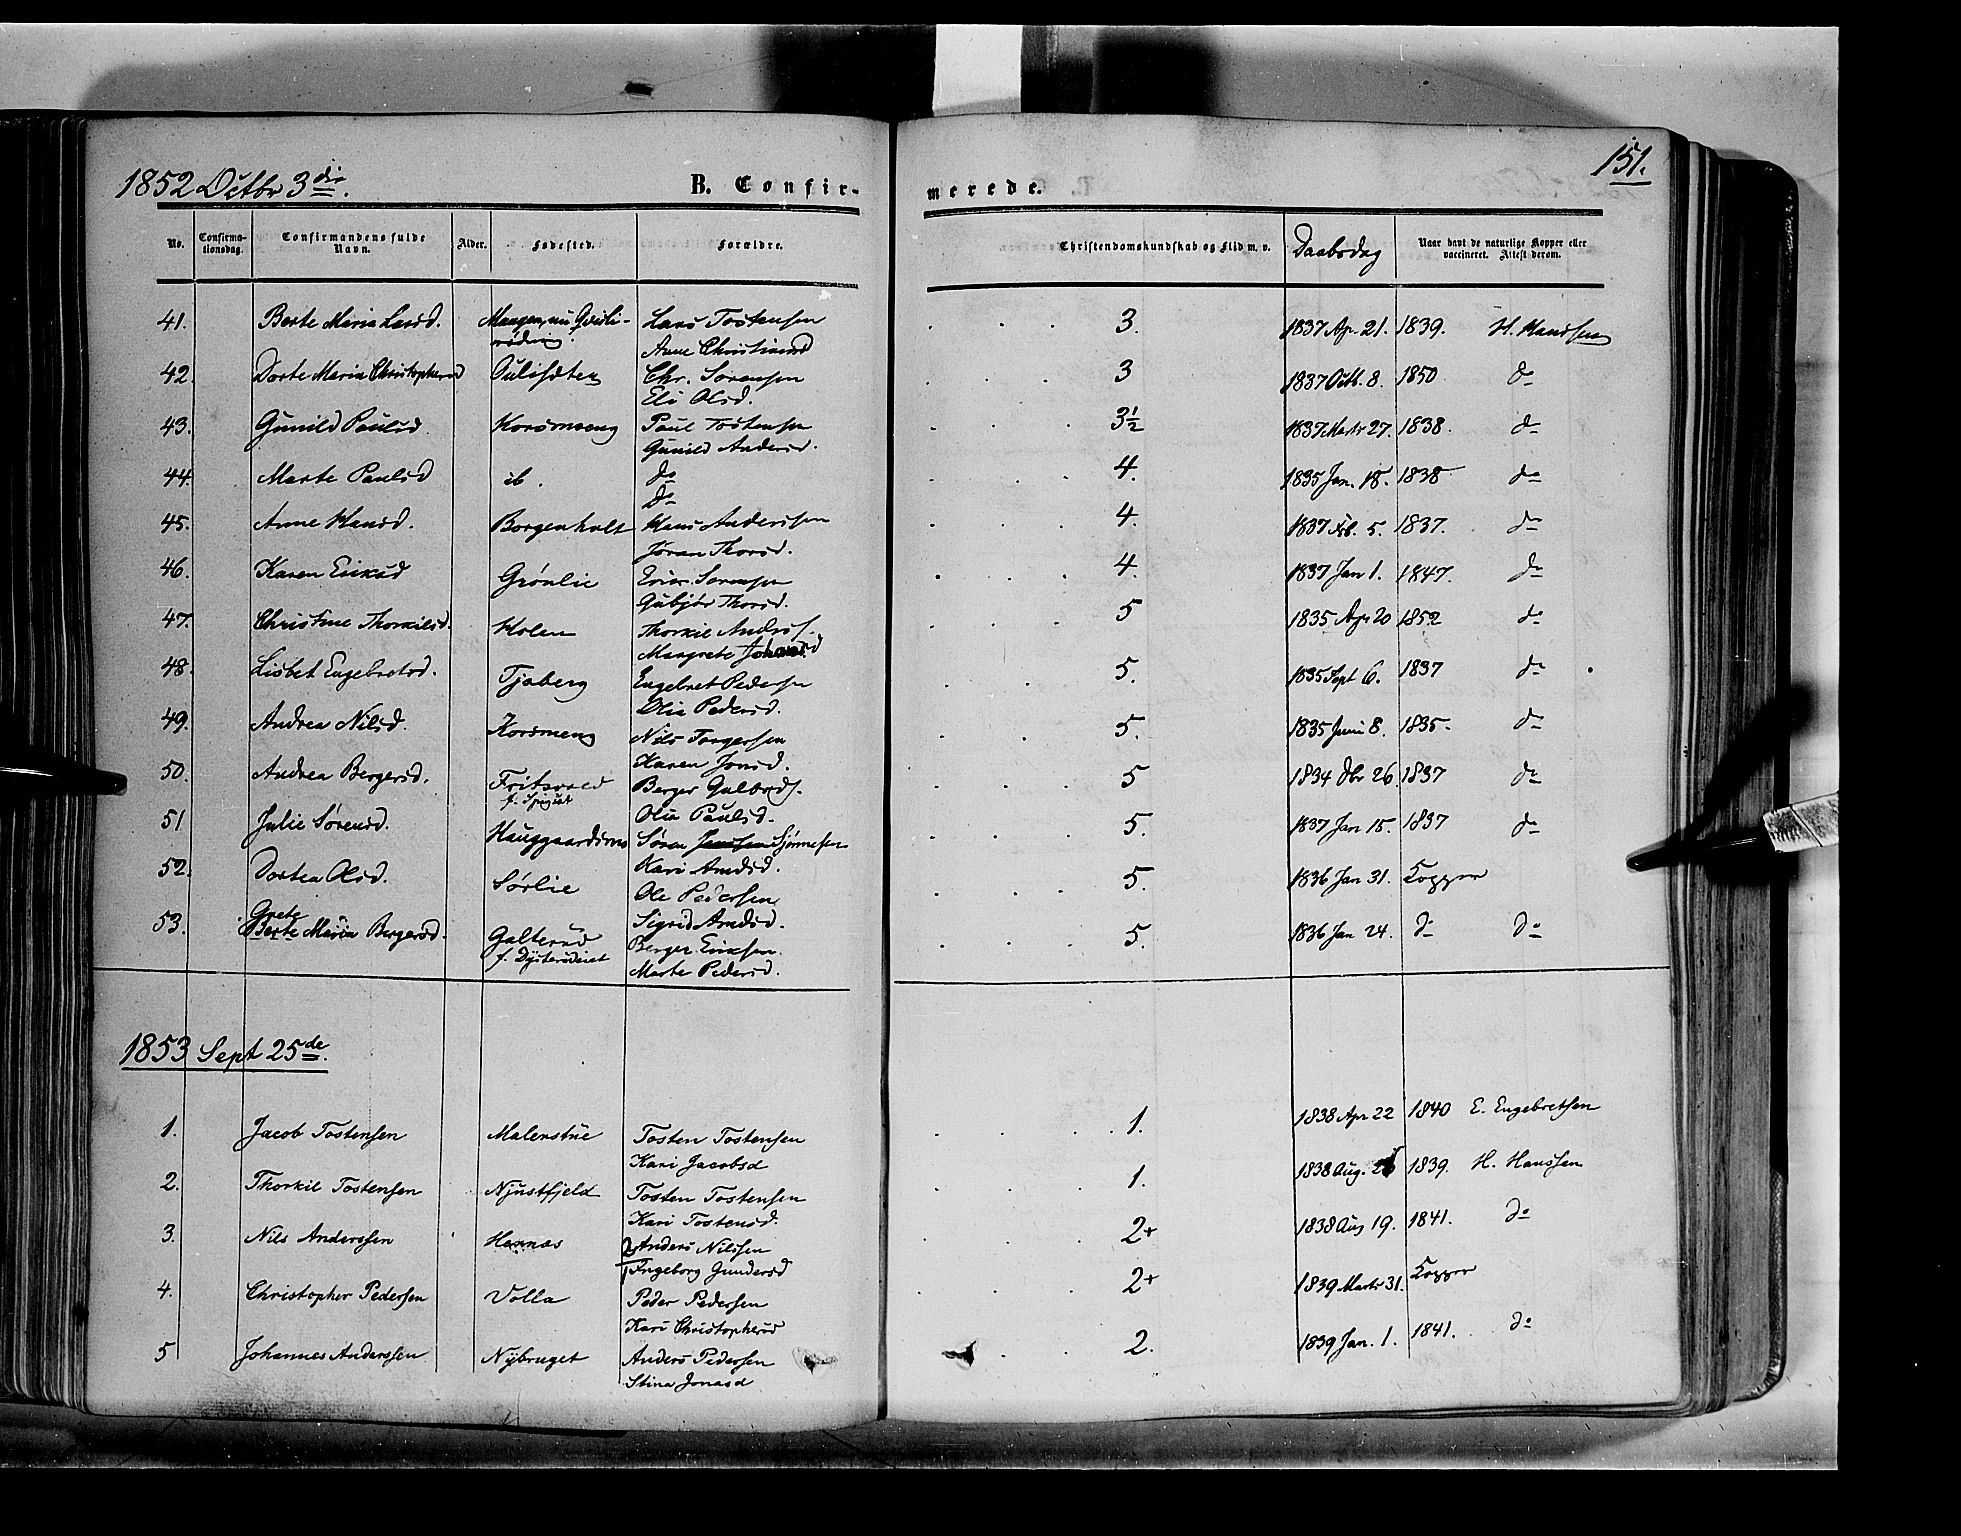 151.
1852 Octbr 3die.
B. Confir-
merede.
No. Confirma-tionsdag. Confirmandens fulde Navn. Alder. Fødested. Forældre. Christendomskundskab og Flid m. v. Daabsdag Naar havt de naturlige Kopper eller vaccineret. Attest derom.
41. Berte Maria Larsd. Mangen, nu Lars Tostensen 3. 1837 Ap. 21. 1839. H. Hanssen
Anne Christiansd
42. Dorte Maria Christophersd Chr. Sørensen 3 1837 Octb. 8. 1850 do
Eli Olsd.
43. Gunild Paulsd Korsmoeng Paul Tostensen 3½ 1837 Marts 27. 1838. do
Gunild Andersd.
44. Marte Paulsd ib. do 4. 1835 Jan. 18. 1838 do
Do
45. Anne Hansd. Borgenholt Hans Anderssen 4. 1837 Feb. 5. 1837. do
Jøran Thorsd.
46. Karen Eriksd Grønlie Eric Sørensen 4. 1837 Jan 1. 1847. do
Gubjør Thorsd.
47. Christine Thorkilsd. Holen Thorkil Andersf. 5 1835 Ap. 20 1852 do
Margrete Johansd
48. Lisbet Engebretsd. Tjaberg Engebret Pedersen 5. 1835 Sept 6. 1837 do
Olia Pedersd.
49. Andrea Nilsd. Korsmeng Nils Torgersen 5. 1835 Juni 8. 1835. do
Karen Jonsd.
50. Andrea Bergersd. Fritsvold Berger Gulbrds. 5 1834 Dbr 26 1837 do
f. Spigset
Olia Paulsd.
51 Julie Sørensd. Hauggaardsmo Søren Jenssen Sjønnesen 5. 1837 Jan 15. 1837 do
Kari Amdsd.
52. Dortea Olsd. Sørlie Ole Pedersen 5. 1836 Jan 31. Kopper
Sigrid Amdsd.
Grete
53. Berte Maria Bergersd. Galterud Berger Eriksen. 5. 1836 Jan 24. do do
Marte Pedersd.
1853 Sept 25de.
1. Jacob Tostensen Malerstue Tosten Tostensen 1. 1838 Apr 22 1840 E. Engebretsen
Kari Jacobsd
2. Thorkil Tostensen Njustfjeld Tosten Tostensen 1. 1838 Aug. 26 1839. H. Hanssen
Kari Tostensd.
3. Nils Anderssen Hannas Anders Nilssen 2+ 1838 Aug 19. 1841. do
Ingeborg Gundersd
4. Christopher Pedersen Volla Peder Pedersen 2+ 1839 Marts 31. Kopper
Kari Christophersd
5 Johannes Anderssen Nybruget Anders Pedersen 2. 1839 Jan. 1. 1841. do
Stina Jonasd